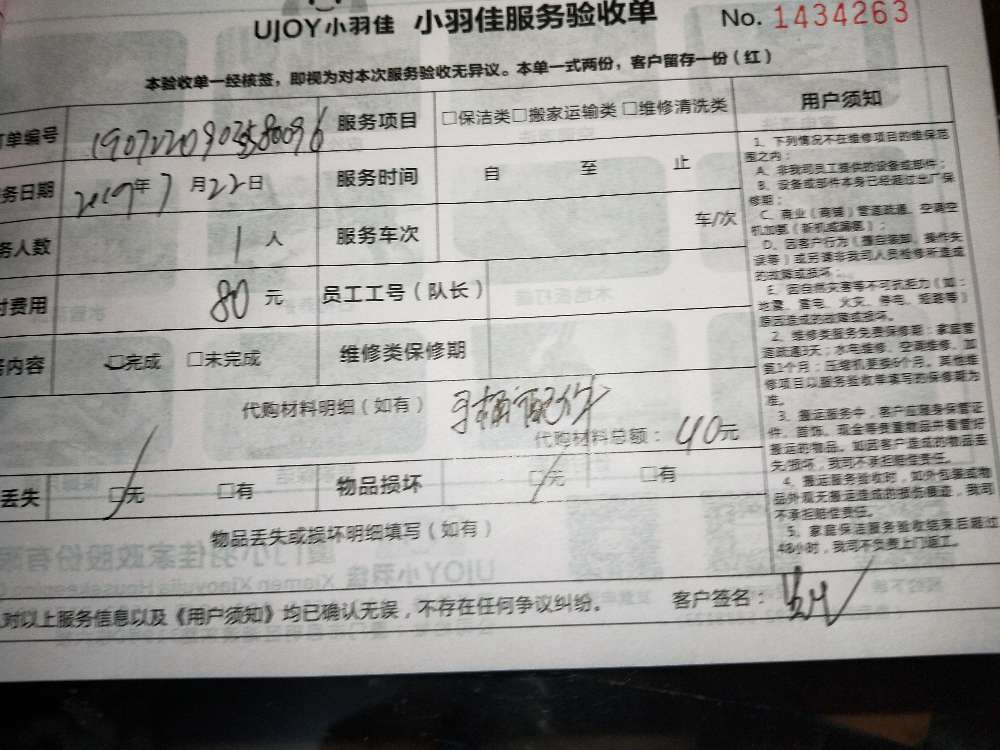 UJOY小羽佳 小羽佳服务验收单 No. 1434263
本验收单一经核签，即视为对本次服务验收无异议。本单一式两份，客户留存一份（红）
单编号 服务项目 □保洁类□搬家运输类 □维修清洗类 用户须知
务日期 2019年7月22日 服务时间 自 至 止
务人数 1人 服务车次 车/次
付费用 80元 员工工号（队长）
务内容 □完成 □未完成 维修类保修期
代购材料明细（如有）
代购材料总额：40元
丢失 □无 □有 物品损坏 □无 □有
物品丢失或损坏明细填写（如有）
对以上服务信息以及《用户须知》均已确认无误，不存在任何争议纠纷。 客户签名：
1、下列情况不在维修项目的维保范
围之内：
A、非我司员工提供的设备或部件；
B、设备或部件本身已经超过出厂保
修期；
C、商业（商铺）管道疏通、空调空
机加氨（新机或漏氨）；
D、因客户行为（擅自装卸、操作失
误等）或另请非我司人员检修所造成
的故障或损坏；
E、因自然灾害等不可抗拒力（如：
地震、雷电、火灾、停电、短路等）
原因造成的故障或损坏。
2、维修类服务免费保修期：家庭管
道疏通3天；水电维修、空调维修、加
氨1个月；压缩机更换6个月。其他维
修项目以服务验收单填写的保修期为
准。
3、搬运服务中，客户应随身保管证
件、首饰、现金等贵重物品并看管好
搬运的物品。如因客户造成的物品丢
失/损坏，我司不承担赔偿责任。
4、搬运服务验收时，如外包装或物
品外观无搬运造成的损伤痕迹，我司
不承担赔偿责任。
5、家庭保洁服务验收结束后超过
48小时，我司不负责上门返工。